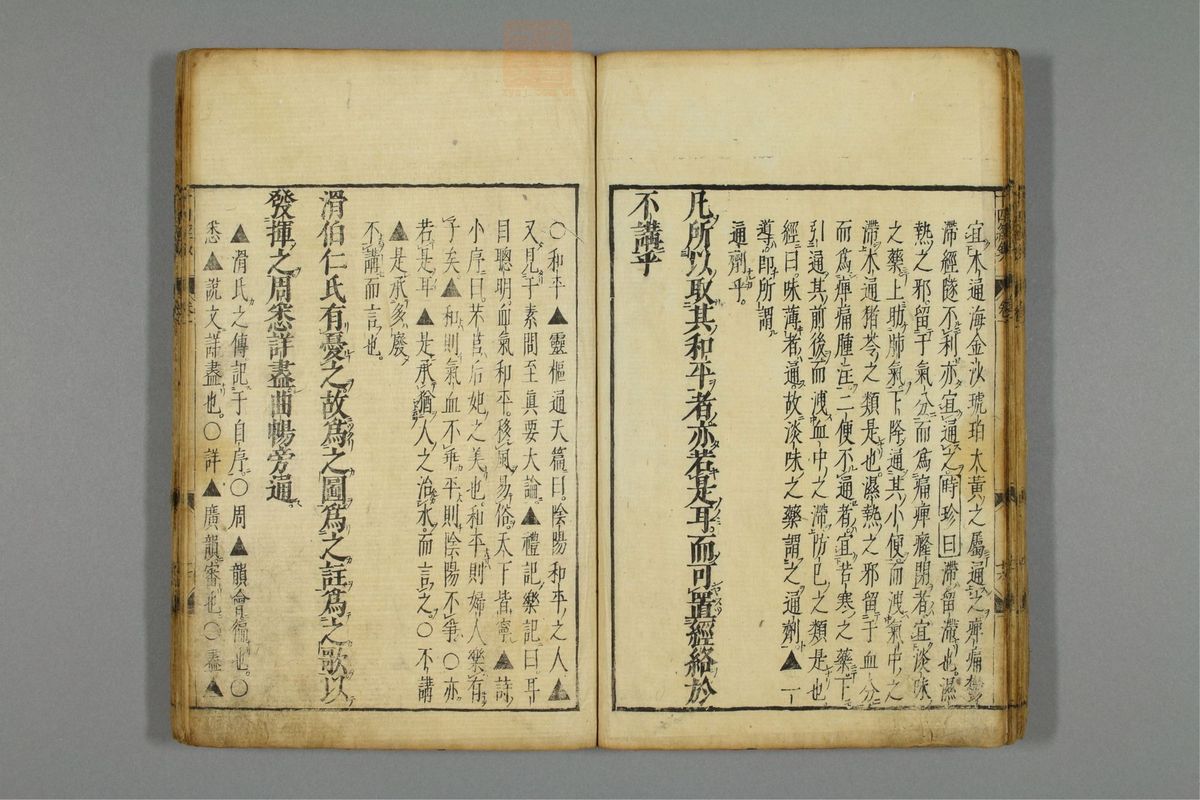 宜木通海金沙琥珀大黃之屬通之痺痛鬱
滯經隧不利亦宜通之時珍曰滯留滯也濕
熱之邪留于氣分而爲痛痺癃閉者宜淡味
之藥上助肺氣下降通其小便而洩氣中之
滯木通猪苓之類是也濕熱之邪留于血分
而爲痺痛腫注二便不通者宜苦寒之藥下
引通其前後而洩血中之滯防已之類是也
經曰味薄者通故淡味之藥謂之通劑▲一
導即所謂
通劑乎
凡所以取其和平者亦若是耳而可置經絡於
不講乎
○和平▲靈樞通天篇曰陰陽和平之人▲
又見于素問至眞要大論▲禮記樂記曰耳
目聰明而氣和平移風易俗天下皆寧▲詩
小序曰芣苢后妃之美也和平則婦人樂有
子矣▲和則氣血不乖平則陰陽不爭○亦
若是耳▲是承猶人之治水而言之○不講
▲是承多廢
不講而言也
滑伯仁氏有憂之故爲之圖爲之註爲之歌以
發揮之周悉詳盡曲暢旁通
▲滑氏之傳記于自序○周▲韻會徧也○
悉▲說文詳盡也○詳▲廣韻審也○盡▲